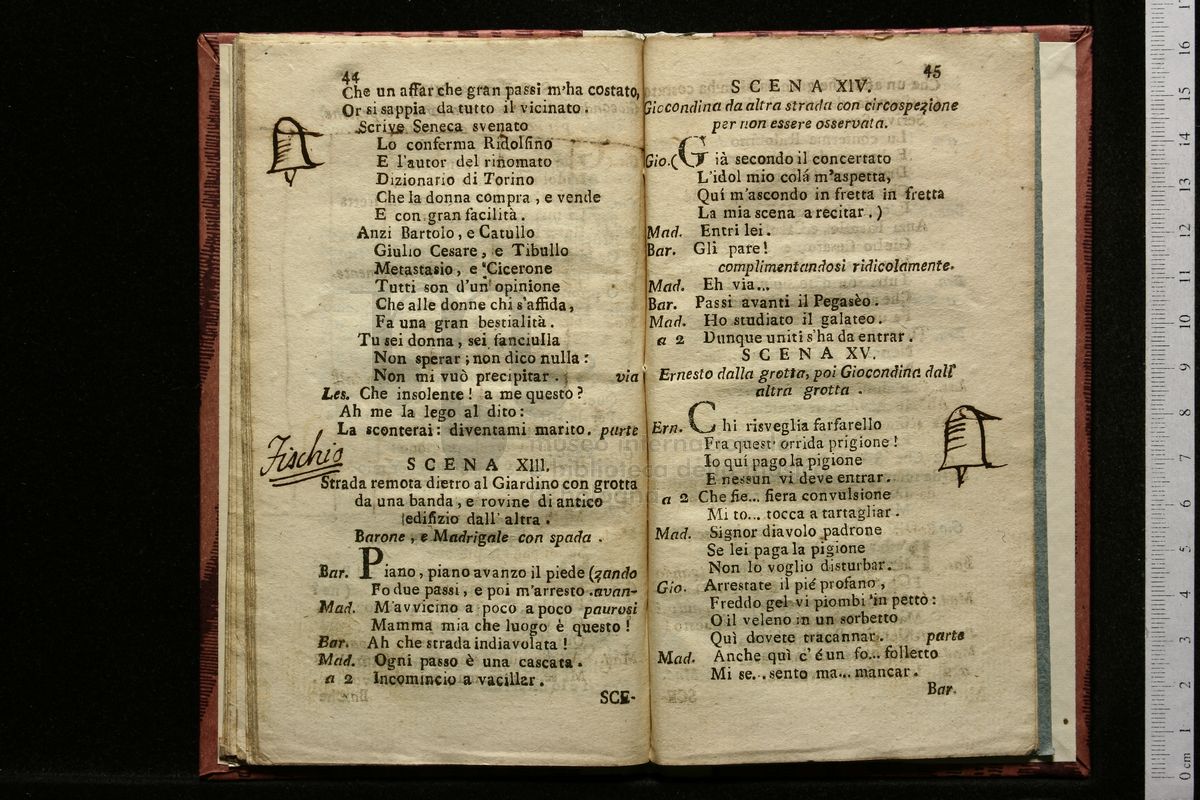 44
Che un affar che gran passi m'ha costato,
Or si sappia da tutto il vicinato.
Scrive Seneca svenato
Lo conferma Ridolfino
E l'autor del rinomato
Dizionario di Torino
Che la donna compra, e vende
E con gran facilità.
Anzi Bartolo, e Catullo
Giulio Cesare, e Tibullo
Metastasio, e Cicerone
Tutti son d'un opinione
Che alle donne chi s'affida,
Fa una gran bestialità.
Tu sei donna, sei fanciulla
Non sperar; non dico nulla:
Non mi vuò precipitar. via
Les. Che insolente! a me questo?
Ah me la lego al dito:
La sconterai: diventami marito. parte
Fischio
SCENA XIII.
Strada remota dietro al Giardino con grotta
da una banda, e rovine di antico
edifizio dall' altra.
Barone, e Madrigale con spada.
Bar. Piano, piano avanzo il piede (zando
Fo due passi, e poi m'arresto. avan-
Mad. M'avvicino a poco a poco paurosi
Mamma mia che luogo è questo!
Bar. Ah che strada indiavolata!
Mad. Ogni passo è una cascata.
a 2 Incomincio a vacillar.
SCE-
45
SCENA XIV.
Giocondina da altra strada con circospezione
per non essere osservata.
Gio. (Già secondo il concertato
L'idol mio colá m'aspetta,
Quí m'ascondo in fretta in fretta
La mia scena a recitar.)
Mad. Entri lei.
Bar. Gli pare!
complimentandosi ridicolamente.
Mad. Eh via...
Bar. Passi avanti il Pegasèo.
Mad. Ho studiato il galateo.
a 2 Dunque uniti s'ha da entrar.
SCENA XV.
Ernesto dalla grotta, poi Giocondina dall'
altra grotta.
Ern. Chi risveglia farfarello
Fra quest' orrida prigione!
Io quí pago la pigione
E nessun vi deve entrar.
a 2 Che fie... fiera convulsione
Mi to... tocca a tartagliar.
Mad. Signor diavolo padrone
Se lei paga la pigione
Non lo voglio disturbar.
Gio. Arrestate il pié profano,
Freddo gel vi piombi in petto:
O il veleno in un sorbetto
Quì dovete tracannar. parte
Mad. Anche quì c'é un fo... folletto
Mi se... sento ma... mancar.
Bar.